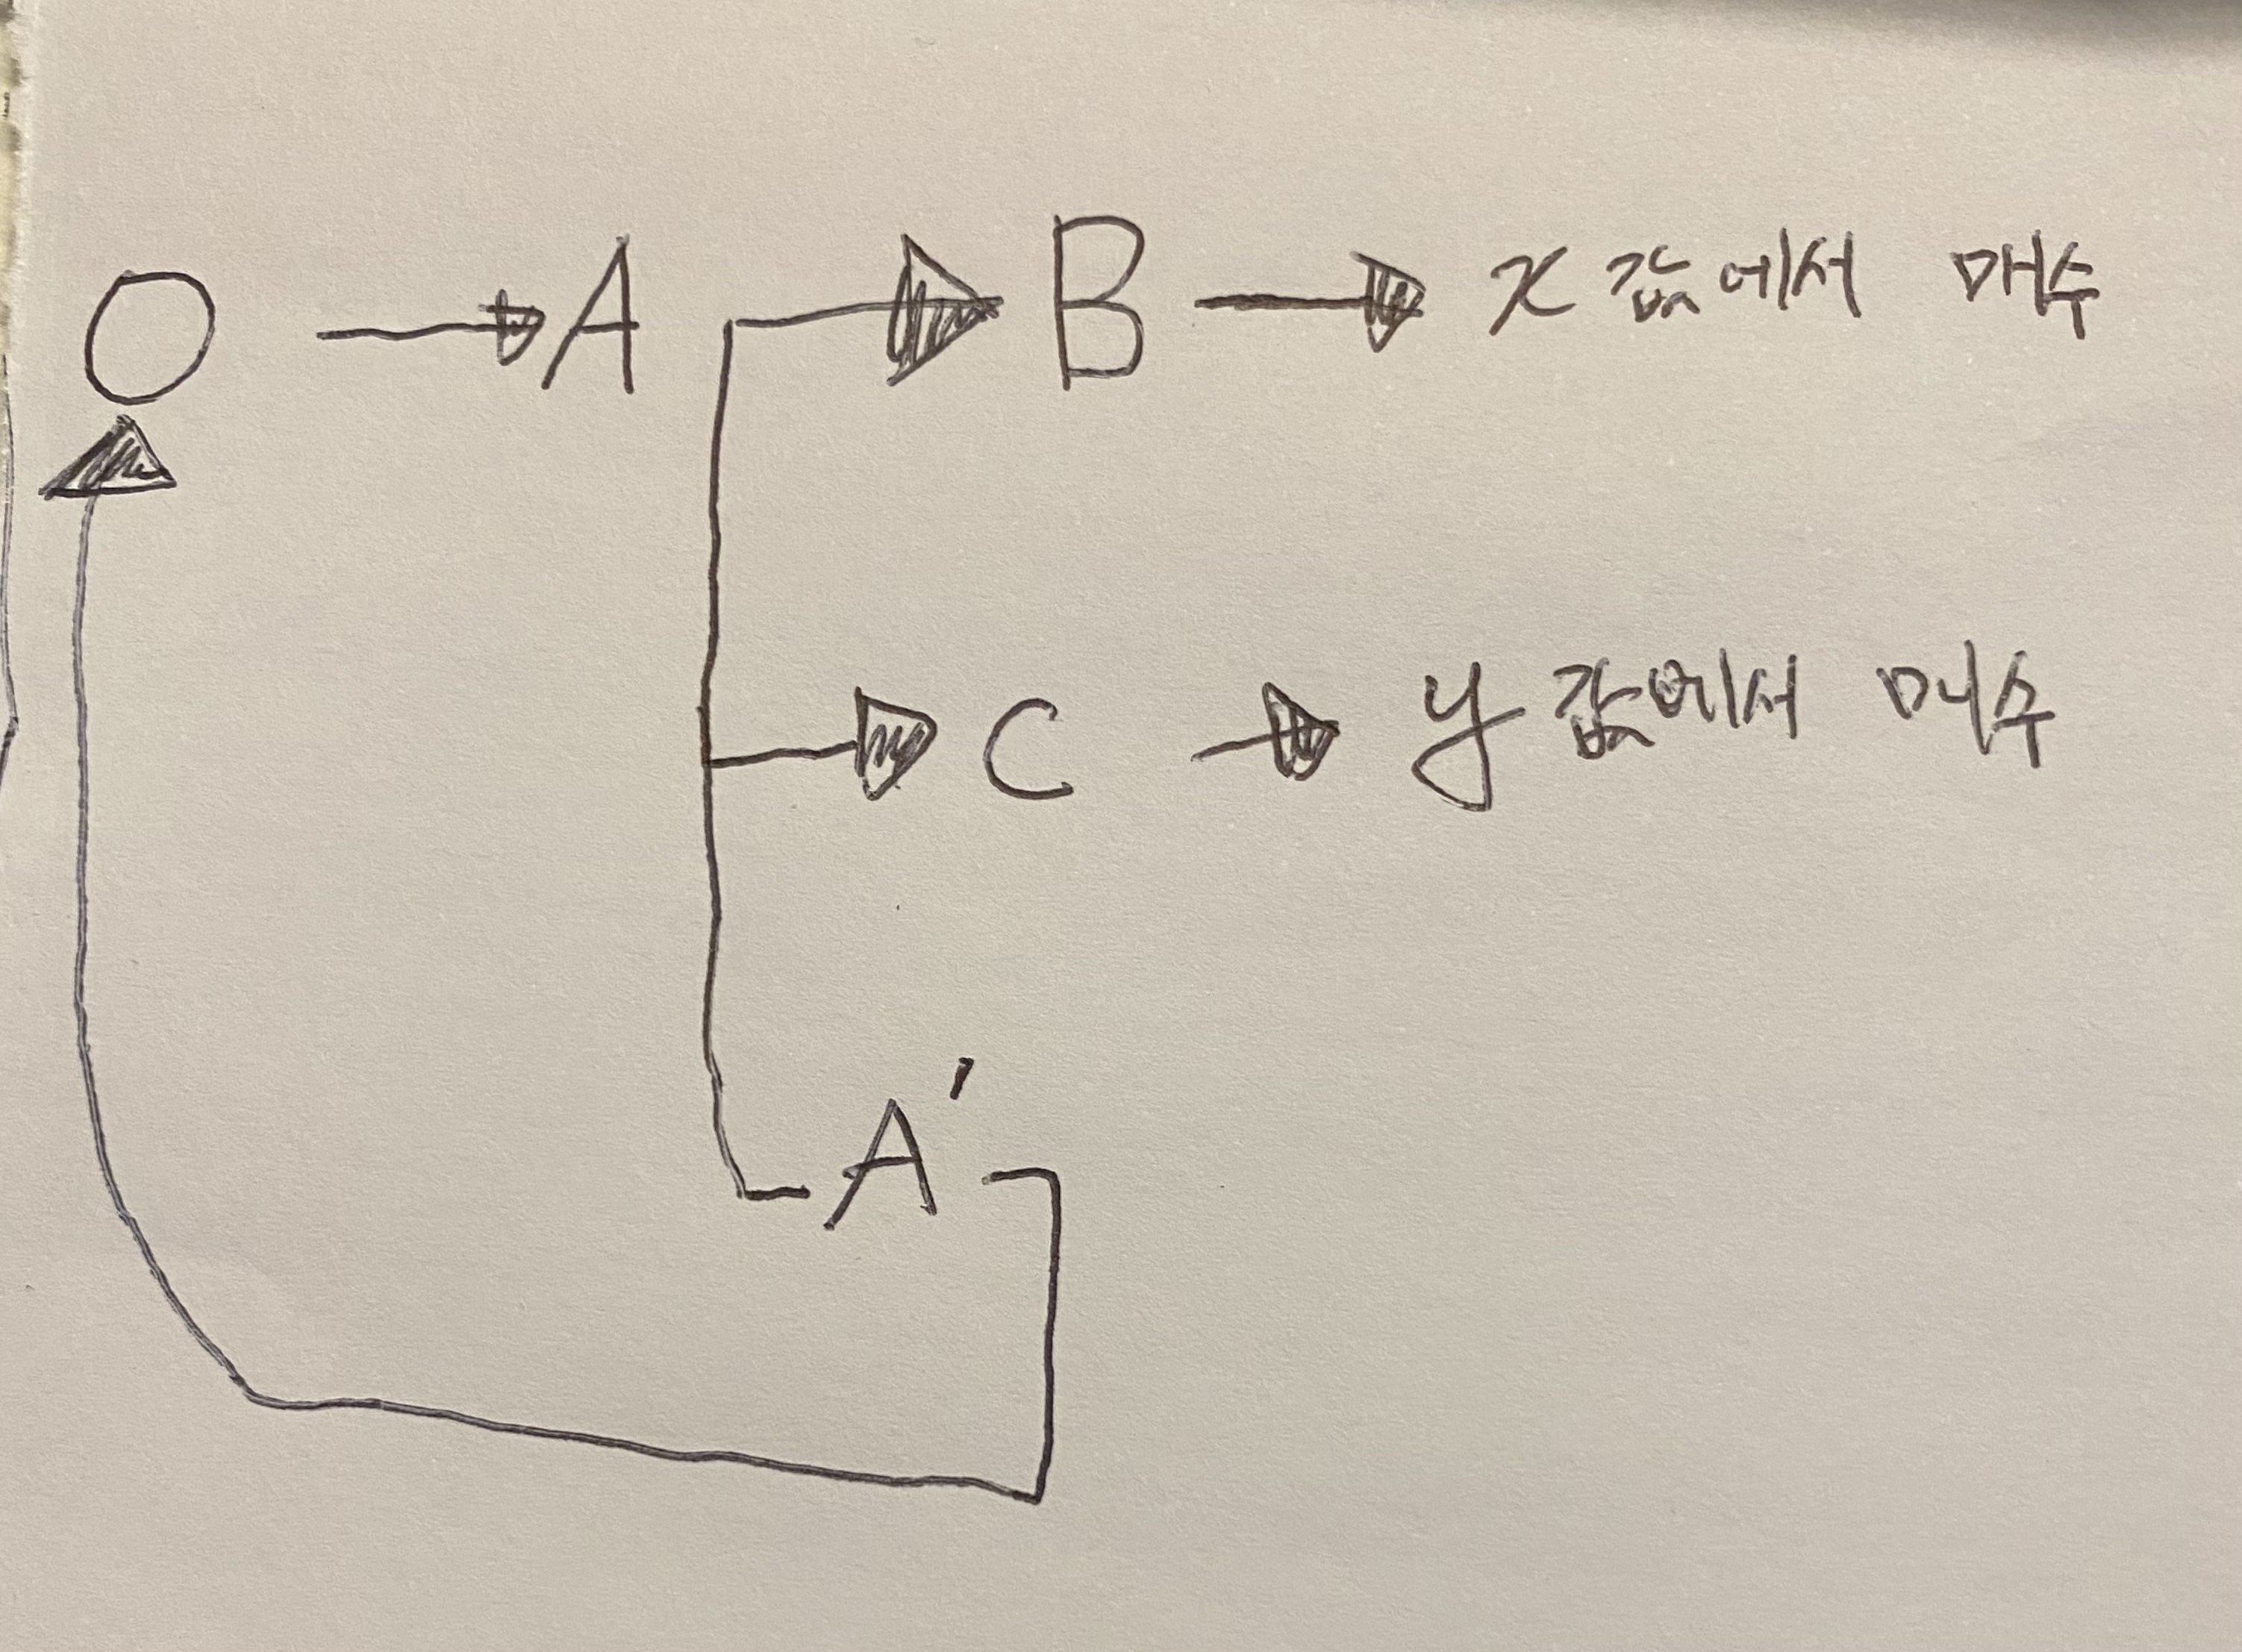 O → A → B → x 값에서 매수
→ C → y 값에서 매수
A'